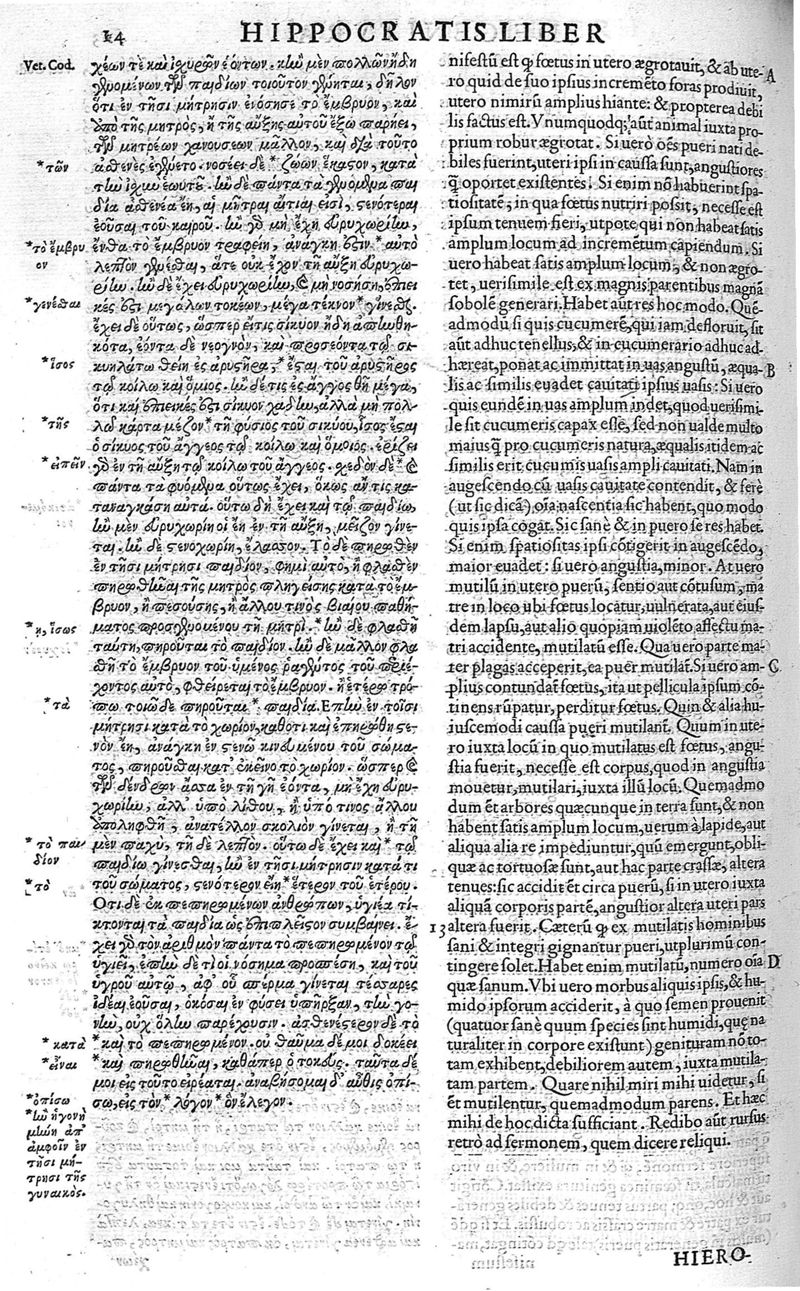 24 HIPPOCRATIS LIBER
Vet. Cod.
*τῶν
*τὸ ἔμβρυ
ον
*γενέσθαι
*ἴσος
*τῆς
*εἰπεῖν
*τὰ
*τὸ παι
δίον
*τὸ
*κατὰ
*εἶναι
*ὀπίσω
ἀμφοῖν ἐν
τῇσι μή-
τρῃσι τῆς
γυναικός.
χέων τὲ καὶ ἰσχυρῶν ἐόντων. κἢν μὲν πολλῶν ἤδη
γενομένων τῶν παιδίων τοιοῦτον γένηται, δῆλον
ὅτι ἐν τῇσι μήτρῃσιν ἐνόσησε τὸ ἔμβρυον, καὶ
ἀπὸ τῆς μητρὸς, ἢ τῆς αὔξης αὐτοῦ ἔξω παρῄει,
τῶν μητρέων χανουσέων μᾶλλον, καὶ διὰ τοῦτο
ἀσθενὲς ἐγένετο. νοσέει δὲ *ζώων ἕκαστον, κατὰ
τὴν ἰσχὺν ἑωυτῆς. ἢν δὲ πάντα τὰ γενόμενα παι
δία ἀσθενέα ἔῃ, αἱ μῆτραι αἴτιαί εἰσι, στενότεραι
ἐοῦσαι τοῦ καιροῦ. ἢν γὰρ μὴ ἔχῃ εὐρυχωρίην,
ἔνθα τὸ ἔμβρυον τραφείη, ἀνάγκη ἐστὶν *αὐτὸ
λεπτὸν γενέσθαι, ἅτε οὐκ ἔχον τῇ αὔξῃ εὐρυχω-
ρίην. ἢν δὲ ἔχει εὐρυχωρίην, καὶ μὴ νοσήσῃ, ἐπιει
κές ἐστι μεγάλων τοκέων, μέγα τέκνον *γίνεσθαι.
ἔχει δὲ οὕτως, ὥσπερ εἴ τις σίκυον ἤδη ἀπηνθη-
κότα, ἐόντα δὲ νεογνὸν, καὶ προσεόντα τῷ σι-
κυηλάτῳ θείη ἐς ἀρυστῆρα, *ἔσται τοῦ ἀρυστῆρος
τῷ κοίλῳ καὶ ὅμοιος. ἢν δέ τις ἐς ἄγγος θῇ μέγα,
ὅτι καὶ ἐπιεικές ἐστι σίκυον χαδεῖν, ἀλλὰ μὴ πολ-
λῷ κάρτα μέζον *τῇ φύσιος τοῦ σικύου, ἴσος ἔσται
ὁ σίκυος τοῦ ἄγγεος τῷ κοίλῳ καὶ ὅμοιος. ἐρίζει
γὰρ ἐν τῇ αὔξῃ τῷ κοίλῳ τοῦ ἄγγεος. σχεδὸν δὲ *καὶ
πάντα τὰ φυόμενα οὕτως ἔχει, ὅκως ἄν τις κα-
ταναγκάσῃ αὐτά. οὕτω δὴ ἔχει καὶ τῷ παιδίῳ,
ἢν μὲν εὐρυχωρίη οἱ ἔῃ ἐν τῇ αὔξῃ, μεῖζον γίνε-
ται. ἢν δὲ στενοχωρίη, ἔλασσον. Τὸ δὲ πηρωθὲν
ἐν τῇσι μήτρῃσι παιδίον, φημὶ αὐτὸ, ἢ φλασθὲν
πηρωθῆναι τῆς μητρὸς πληγείσης κατὰ τὸ ἔμ-
βρυον, ἢ πεσούσης, ἢ ἄλλου τινὸς βιαίου παθή-
ματος προσγενομένου τῇ μητρί. *ἢν δὲ φλασθῇ
ταύτῃ, πηροῦται τὸ παιδίον. ἢν δὲ μᾶλλον φλα
σθῇ τὸ ἔμβρυον τοῦ ὑμένος ῥαγέντος τοῦ περιέ-
χοντος αὐτὸ, φθείρεται τὸ ἔμβρυον. ἢ ἑτέρῳ τρό-
πῳ τοιῷδε πηροῦται *παιδία. Ἐπὴν ἐν τοῖσι
μήτρῃσι κατὰ τὸ χωρίον, καθότι καὶ ἐπηρώθη στε-
νὸν ἔῃ, ἀνάγκη ἐν στενῷ κινευμένου τοῦ σώμα-
τος, πηροῦσθαι κατ' ἐκεῖνο τὸ χωρίον. ὥσπερ καὶ
τῶν δένδρων ὅσα ἐν τῇ γῇ ἐόντα, μὴ ἔχῃ εὐρυ-
χωρίην, ἀλλ' ὑπὸ λίθου, ἢ ὑπό τινος ἄλλου
ἀποληφθῇ, ἀνατέλλον σκολιὸν γίνεται, ἢ τῇ
μὲν παχὺ, τῇ δὲ λεπτόν. οὕτω δὲ ἔχει καὶ *τῷ
παιδίῳ γίνεσθαι, ἢν ἐν τῇσι μήτρῃσιν κατά τι
τοῦ σώματος, στενότερον εἴη *ἕτερον τοῦ ἑτέρου.
Ὅτι δὲ ἐκ πεπηρωμένων ἀνθρώπων, ὑγιέα τί-
κτονται τὰ παιδία ὡς ἐπιπλεῖστον συμβαίνει. ἔ-
χει γὰρ τὸν ἀριθμὸν πάντα τὸ πεπηρωμένον τῷ
ὑγιεῖ, ἐπὴν δέ τι οἱ νόσημα προσπέσῃ, καὶ τοῦ
ὑγροῦ αὐτῷ, ἀφ' οὗ σπέρμα γίνεται τέσσαρες
ἰδέαι ἐοῦσαι, ὁκόσαι ἐν φύσει ὑπῆρξαν, τὴν γο-
νὴν, οὐχ ὅλην παρέχουσιν. ἀσθενέστερον δὲ τὸ
*καὶ τὸ πεπηρωμένον. οὐ θαῦμα δέ μοι δοκέει
*καὶ πηρωθῆναι, καθάπερ ὁ τοκεύς. ταῦτα δέ
μοι εἰς τοῦτο εἰρέαται. ἀναβήσομαι δ' αὖθις ὀπί-
σω, εἰς τὸν *λόγον *ὃν ἔλεγον.
nifestū est ꝙ fœtus in utero ægrotauit, & ab ute-
ro quid de suo ipsius incremēto foras prodiuit, A
utero nimirū amplius hiante: & propterea debi
lis factus est. Vnumquodq; aūt animal iuxta pro-
prium robur ægrotat. Si uerò oēs pueri nati de-
biles fuerint, uteri ipsi in caussa sunt, angustiores
q̄ oportet existentes: Si enim nō habuerint spa-
tiositatē, in qua fœtus nutriri possit, necesse est
ipsum tenuem fieri, utpote qui non habeat satis
amplum locum ad incremētum capiendum. Si
uero habeat satis amplum locum, & non ægro-
tet, uerisimile est ex magnis parentibus magnā
sobolē generari. Habet aūt res hoc modo. Quē-
admodū si quis cucumerē, qui iam defloruit, sit
aūt adhuc tenellus, & in cucumerario adhuc ad-
hæreat, ponat ac immittat in uas angustū, æqua- B
lis ac similis euadet cauitati ipsius uasis: Si uero
quis eundē in uas amplum indet, quod uerisimi-
le sit cucumeris capax esse, sed non ualde multo
maius q̄ pro cucumeris natura, æqualis itidem ac
similis erit cucumis uasis ampli cauitati. Nam in
augescendo cū uasis cauitate contendit, & ferè
(ut sic dicā) oīa nascentia sic habent, quo modo
quis ipsa cogat. Sic sanè & in puero se res habet.
Si enim spatiositas ipsi cōtigerit in augescēdo,
maior euadet: si uerò angustia, minor. At uero
mutilū in utero puerū, sentio aut cōtusum, ma
tre in loco ubi fœtus locatur, uulnerata, aut eius-
dem lapsu, aut alio quopiam uiolēto affectu ma-
tri accidente, mutilatū esse. Qua uero parte ma-
ter plagas acceperit, ea puer mutilat̄. Si uero am- C
plius contundat̄ fœtus, ita ut pellicula ipsum cō-
tinens rūpatur, perditur fœtus. Quin & alia hu-
iuscemodi caussa pueri mutilant̄. Quum in ute-
ro iuxta locū in quo mutilatus est fœtus, angu-
stia fuerit, necesse est corpus, quod in angustia
mouetur, mutilari, iuxta illū locū. Quemadmo
dum ēt arbores quæcunque in terra sunt, & non
habent satis amplum locum, uerum à lapide, aut
aliqua alia re impediuntur, quū emergunt, obli-
quæ ac tortuosæ sunt, aut hac parte crassæ, altera
tenues: sic accidit ēt circa puerū, si in utero iuxta
aliquā corporis partē, angustior altera uteri pars
13 altera fuerit. Cæterū ꝙ ex mutilatis hominibus
sani & integri gignantur pueri, utplurimū con-
tingere solet. Habet enim mutilatū, numero oīa D
quæ sanum. Vbi uero morbus aliquis ipsis, & hu-
mido ipsorum acciderit, à quo semen prouenit
(quatuor sanè quum species sint humidi, quę na
turaliter in corpore existunt) genituram nō to-
tam exhibent, debiliorem autem, iuxta mutila-
tam partem. Quare nihil miri mihi uidetur, si
ēt mutilentur, quemadmodum parens. Et hæc
mihi de hoc dicta sufficiant. Redibo aūt rursus
retrò ad sermonem, quem dicere reliqui.
HIERO-